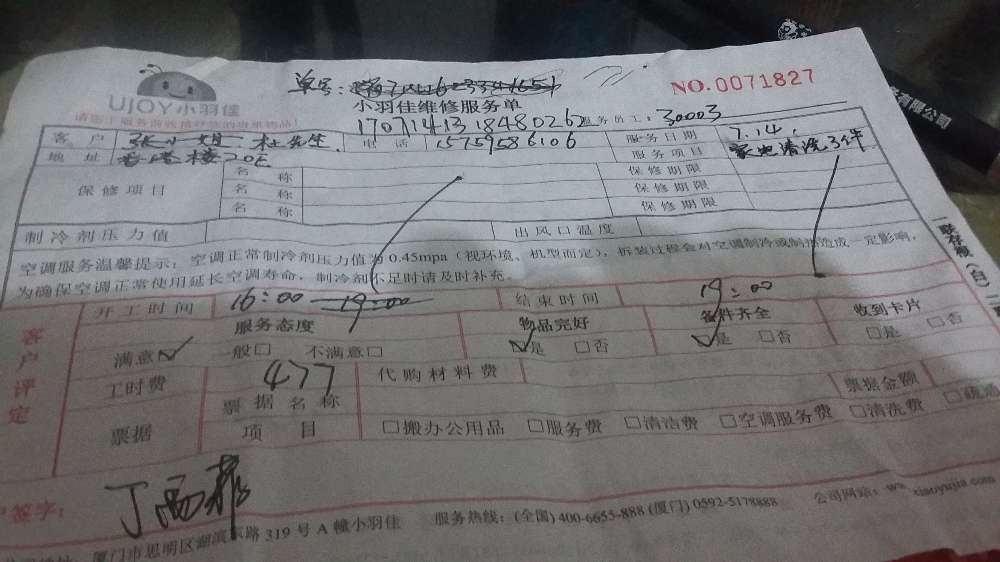 单号:
NO.0071827
UJOY小羽佳
小羽佳维修服务单
请您于服务前收拾好您的贵重物品!
17071413184802 62 服务员工: 30003
客户 张小姐 杜先生 电话 15759586106 服务日期 7.14.
地址 楼20E 服务项目 家电清洗3件
保修项目 名称 保修期限
名称 保修期限
名称 保修期限
制冷剂压力值 出风口温度
空调服务温馨提示:空调正常制冷剂压力值为0.45mpa(视环境、机型而定),拆装过程会对空调制冷或制热造成一定影响,
为确保空调正常使用延长空调寿命,制冷剂不足时请及时补充。
开工时间 16:00 19:00 结束时间 19:00
客户评定
服务态度 物品完好 备料齐全 收到卡片
满意☑ 一般□ 不满意□ ☑是 □否 ☑是 □否 □是 □否
工时费 477 代购材料费
票据 票据名称 票据金额
项目 □搬办公用品 □服务费 □清洁费 □空调服务费 □清洗费
签字:
厦门市思明区湖滨东路319号A幢小羽佳 服务热线:(全国)400-6655-888 (厦门)0592-5178888 公司网站: xiaoyujia.com
一联存根(白)
有限公司